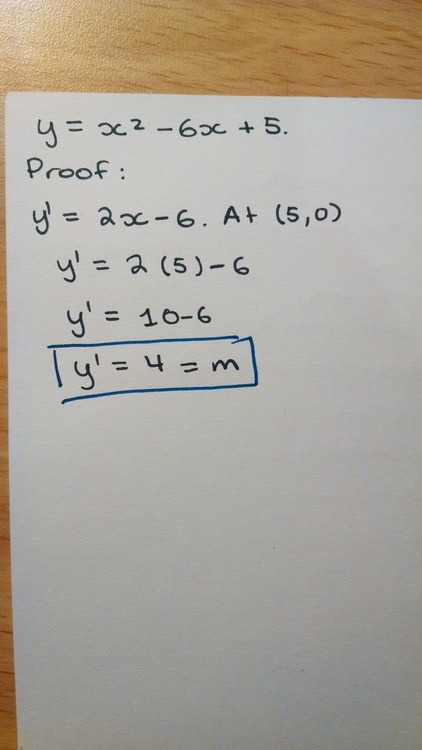 y = x² - 6x + 5.
Proof :
y' = 2x - 6. At (5,0)
y' = 2 (5) - 6
y' = 10 - 6
y' = 4 = m